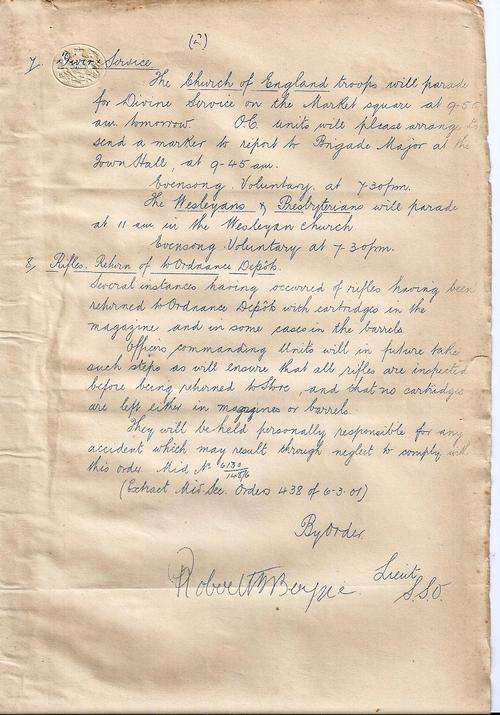 (2)
7. Divine Service
The Church of England troops will parade
for Divine Service on the Market square at 9-55
am. tomorrow. O.C. units will please arrange to
send a marker to report to Brigade Major at the
Town Hall, at 9-45 am.
Evensong. Voluntary. at 7 30pm.
The Wesleyans & Presbyterians will parade
at 11 am in the Wesleyan Church
Evensong Voluntary at 7-30pm.
8, Rifles. Return of to Ordnance Depôt.
Several instances having occurred of rifles having been
returned to Ordnance Depôt with cartridges in the
magazine and in some cases in the barrels.
Officers commanding Units will in future take
such steps as will ensure that all rifles are inspected
before being returned to Store, and that no cartridges
are left either in magazines or barrels.
They will be held personally responsible for any
accident which may result through neglect to comply with
this order. Mid. No.
(Extract Mid. Sec. Orders 438 of 6-3-01)
By Order.
Robert
Lieut.
S.S.O.